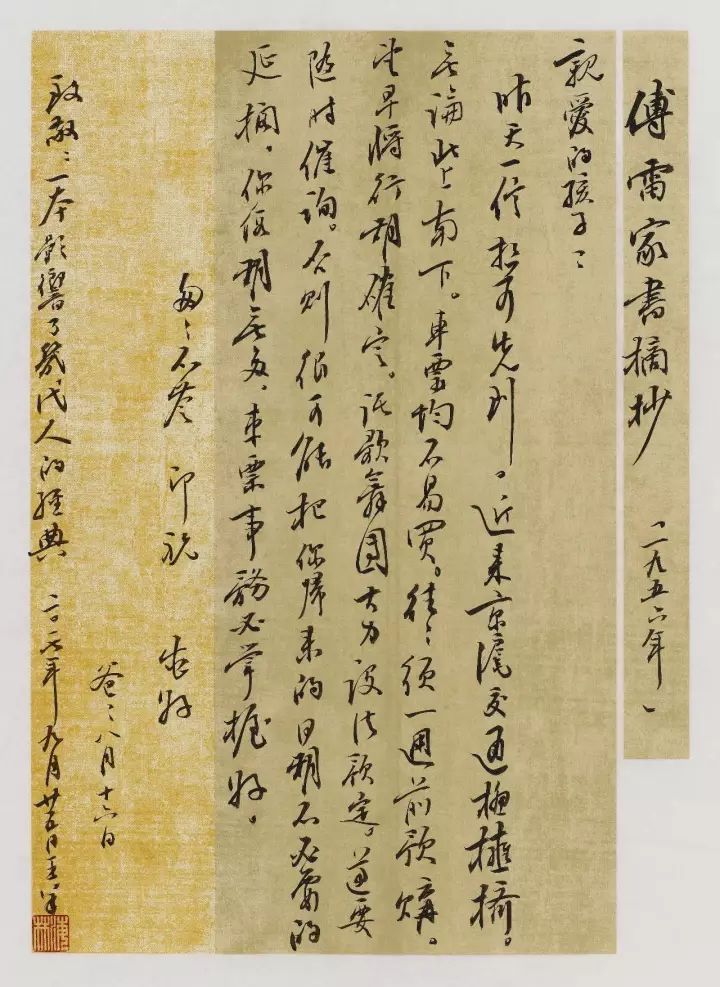 傅雷家書摘抄 「一九五六年」
親愛的孩子：
昨天一信想可先到。近來京滬交通極擁擠。
無論北上南下。車票均不易買。往往須一週前預購。
望早將行期確定。託歌舞團大力設法預定。還要
隨時催詢。否則很可能把你歸來的日期不必要的
延擱。你假期無多，車票事務必掌握好。
匆匆不盡 即祝 安好
爸爸 八月十六日
致敬：一本影響了幾代人的經典 二〇一七年九月廿五日